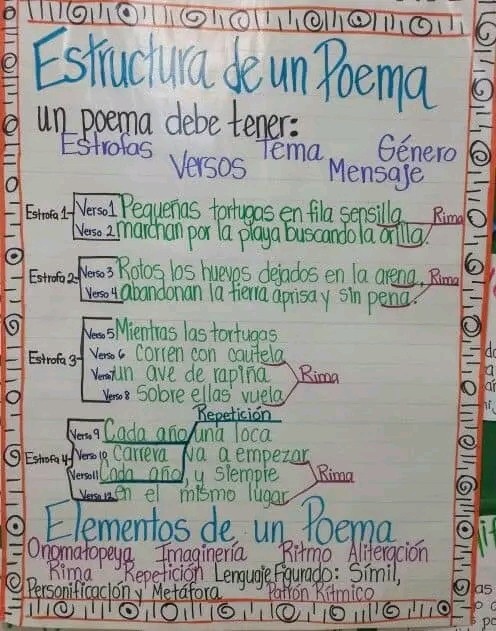 Estructura de un Poema
un poema debe tener:
Estrofas Versos Tema Mensaje Género
Estrofa 1 Verso 1 Pequeñas tortugas en fila sensilla Rima
Verso 2 marchan por la playa buscando la orilla.
Estrofa 2 Verso 3 Rotos los huevos dejados en la arena, Rima
Verso 4 abandonan la tierra aprisa y sin pena.
Verso 5 Mientras las tortugas
Estrofa 3 Verso 6 corren con cautela
Verso 7 un ave de rapiña Rima
Verso 8 sobre ellas vuela
Repetición
Verso 9 Cada año una loca
Estrofa 4 Verso 10 carrera va a empezar
Verso 11 Cada año, y siempre Rima
Verso 12 en el mismo lugar
Elementos de un Poema
Onomatopeya Imaginería Ritmo Aliteración
Rima Repetición Lenguaje Figurado: Símil,
Personificación y Metáfora Patrón Rítmico